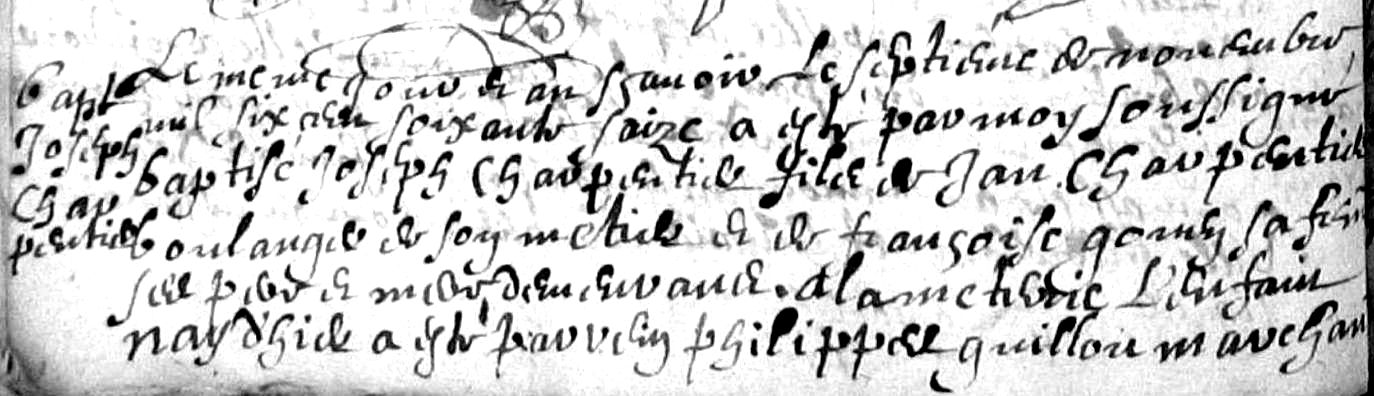 Bapt Le meme jour et an sçavoir Le septieme de novembre
Joseph mil six cen soixante saize a este par moy soussigne
Char baptise Joseph Charpentier filz de Jan Charpentier
pentier boulanger de son metier et de françoise gomen sa fem
ses pere et mere demeurans a la meterie L'enfain
nay d'hier a este parrein philippes guillou marchan